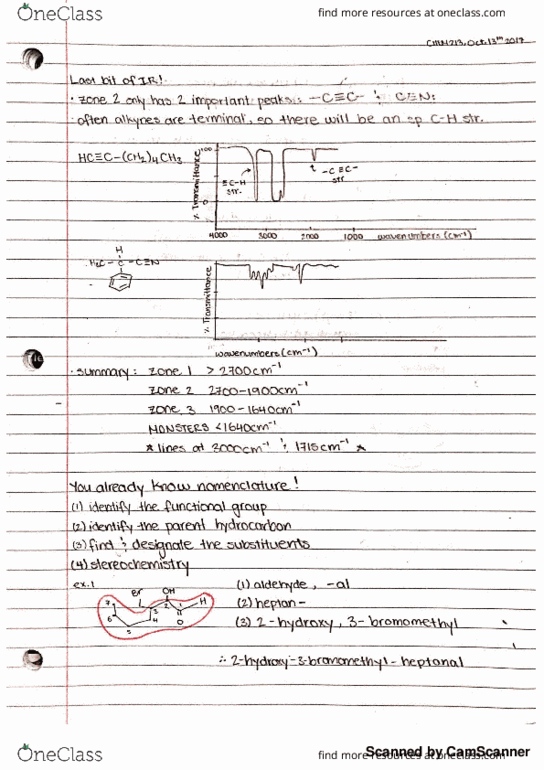 OneClass
find more resources at oneclass.com
Oct. 13th 2017
Last bit of IR!
· zone 2 only has 2 important peaks: -C≡C- & C≡N:
· often alkynes are terminal, so there will be an sp C-H str.
HC≡C-(CH2)4CH3
% Transmittance
100
0
≡C-H
str.
-C≡C-
str
4000 3000 2000 1000 wavenumbers (cm-1)
H
H3C-C-C≡N
% Transmittance
wavenumbers (cm-1)
· summary: zone 1 > 2700cm-1
zone 2 2700-1900cm-1
zone 3 1900-1640cm-1
MONSTERS <1640cm-1
* lines at 3000cm-1 & 1715cm-1 *
You already know nomenclature!
(1) identify the functional group
(2) identify the parent hydrocarbon
(3) find & designate the substituents
(4) stereochemistry
ex.1
OH
H
O
7 6 5 4 3 2 1
(1) aldehyde, -al
(2) heptan-
(3) 2-hydroxy, 3-bromomethyl
∴ 2-hydroxy-3-bromomethyl-heptanal
OneClass
find more resources at oneclass.com
Scanned by CamScanner